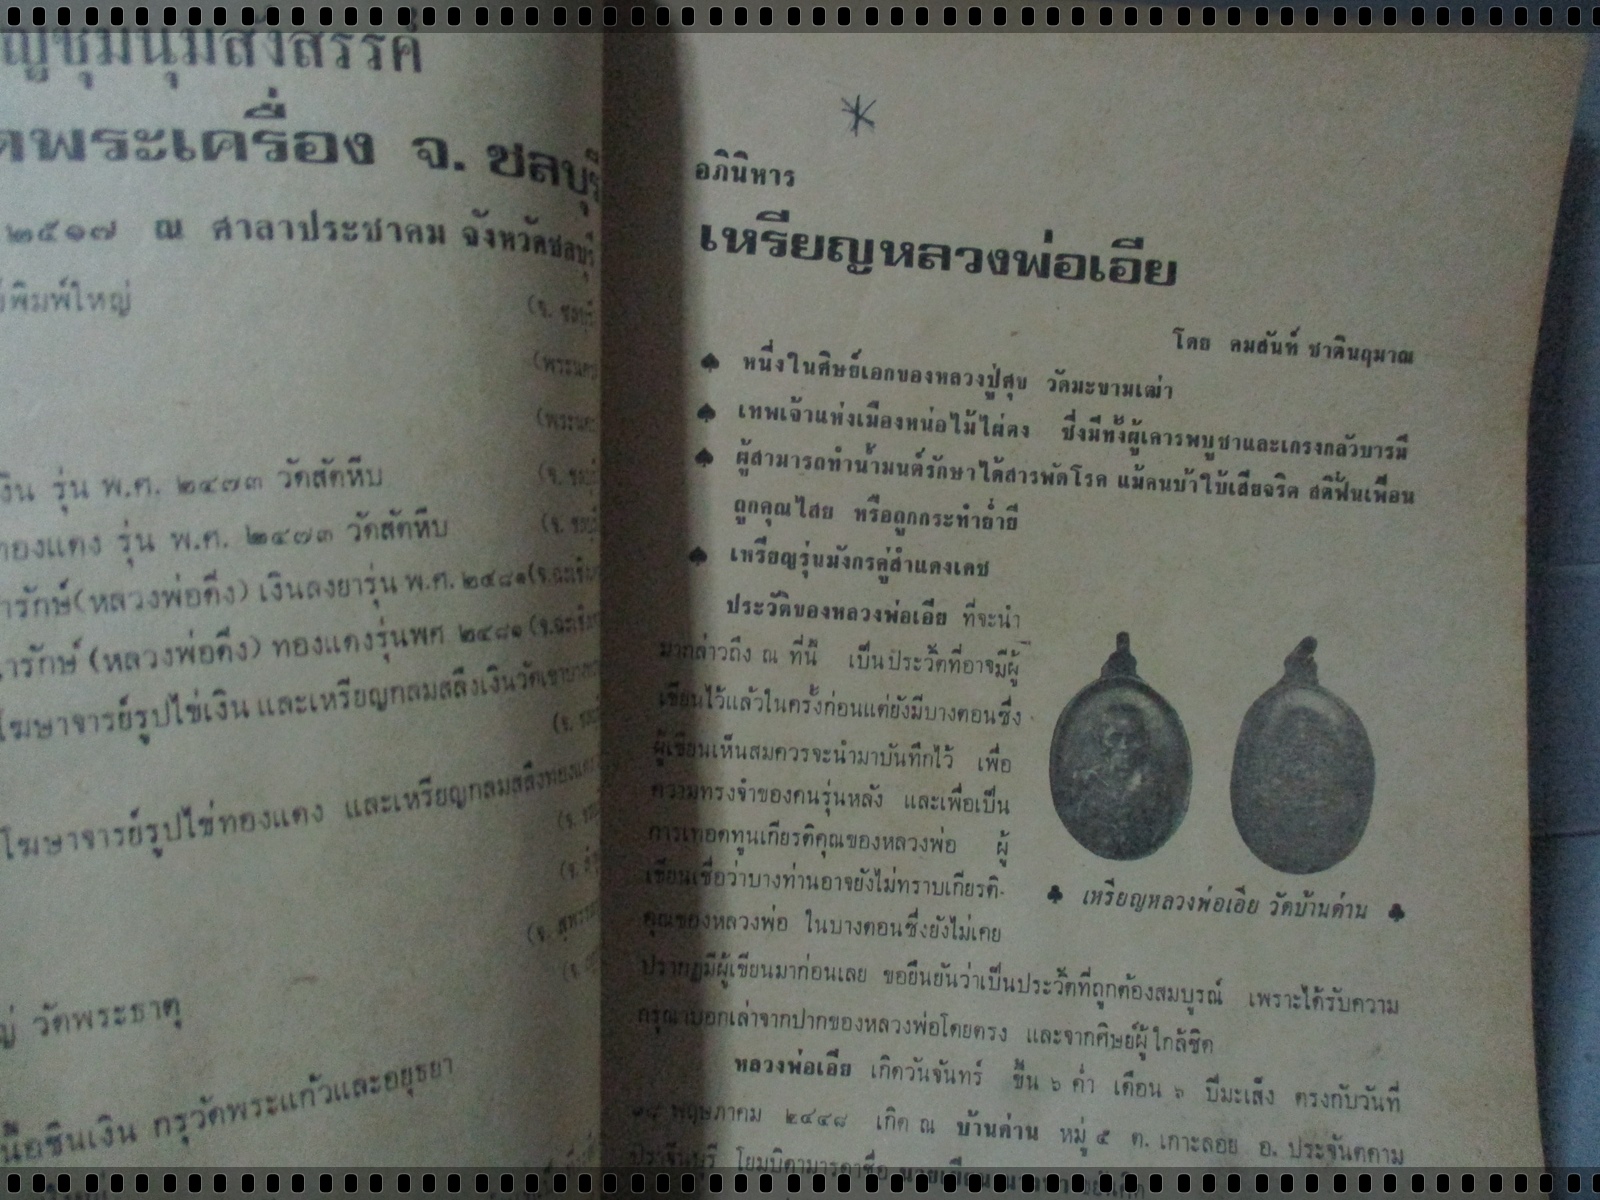 ญชุมนุมสังสรรค์
พระเครื่อง จ. ชลบุรี
๒๕๑๗ ณ ศาลาประชาคม จังหวัดชลบุรี
พิมพ์ใหญ่
เงิน รุ่น พ.ศ. ๒๔๗๓ วัดสัตหีบ
ทองแดง รุ่น พ.ศ. ๒๔๗๓ วัดสัตหีบ
ารักษ์ (หลวงพ่อดิ่ง) เงินลงยารุ่น พ.ศ. ๒๔๘๑ (จ.ฉะเชิง
ารักษ์ (หลวงพ่อดิ่ง) ทองแดงรุ่นพศ ๒๔๘๑ (จ.ฉะเชิง
โฆษาจารย์รูปไข่เงิน และเหรียญกลมสลึงเงิน
โฆษาจารย์รูปไข่ทองแดง และเหรียญกลมสลึงทองแดง
วัดพระธาตุ
เนื้อชินเงิน กรุวัดพระแก้วและอยุธยา
อภินิหาร
เหรียญหลวงพ่อเอีย
โดย คมสันท์ ชาตินฤมาณ
♠ หนึ่งในศิษย์เอกของหลวงปู่ศุข วัดมะขามเฒ่า
♠ เทพเจ้าแห่งเมืองหน่อไม้ไผ่ตง ซึ่งมีทั้งผู้เคารพบูชาและเกรงกลัวบารมี
♠ ผู้สามารถทำน้ำมนต์รักษาได้สารพัดโรค แม้คนบ้าใบ้เสียจริต สติฟั่นเฟือน
ถูกคุณไสย หรือถูกกระทำย่ำยี
♠ เหรียญรุ่นมังกรคู่สำแดงเดช
ประวัติของหลวงพ่อเอีย ที่จะนำ
มากล่าวถึง ณ ที่นี้ เป็นประวัติที่อาจมีผู้
เขียนไว้แล้วในครั้งก่อนแต่ยังมีบางตอนซึ่ง
ผู้เขียนเห็นสมควรจะนำมาบันทึกไว้ เพื่อ
ความทรงจำของคนรุ่นหลัง และเพื่อเป็น
การเทอดทูนเกียรติคุณของหลวงพ่อ ผู้
เขียนเชื่อว่าบางท่านอาจยังไม่ทราบเกียรติ-
คุณของหลวงพ่อ ในบางตอนซึ่งยังไม่เคย
♣ เหรียญหลวงพ่อเอีย วัดบ้านด่าน ♣
ปรากฏมีผู้เขียนมาก่อนเลย ขอยืนยันว่าเป็นประวัติที่ถูกต้องสมบูรณ์ เพราะได้รับความ
กรุณาบอกเล่าจากปากของหลวงพ่อโดยตรง และจากศิษย์ผู้ใกล้ชิด
หลวงพ่อเอีย เกิดวันจันทร์ ขึ้น ๖ ค่ำ เดือน ๖ ปีมะเส็ง ตรงกับวันที่
พฤษภาคม ๒๔๔๘ เกิด ณ บ้านด่าน หมู่ ๕ ต. เกาะลอย อ. ประจันตคาม
ปราจีนบุรี โยมบิดามารดาชื่อ